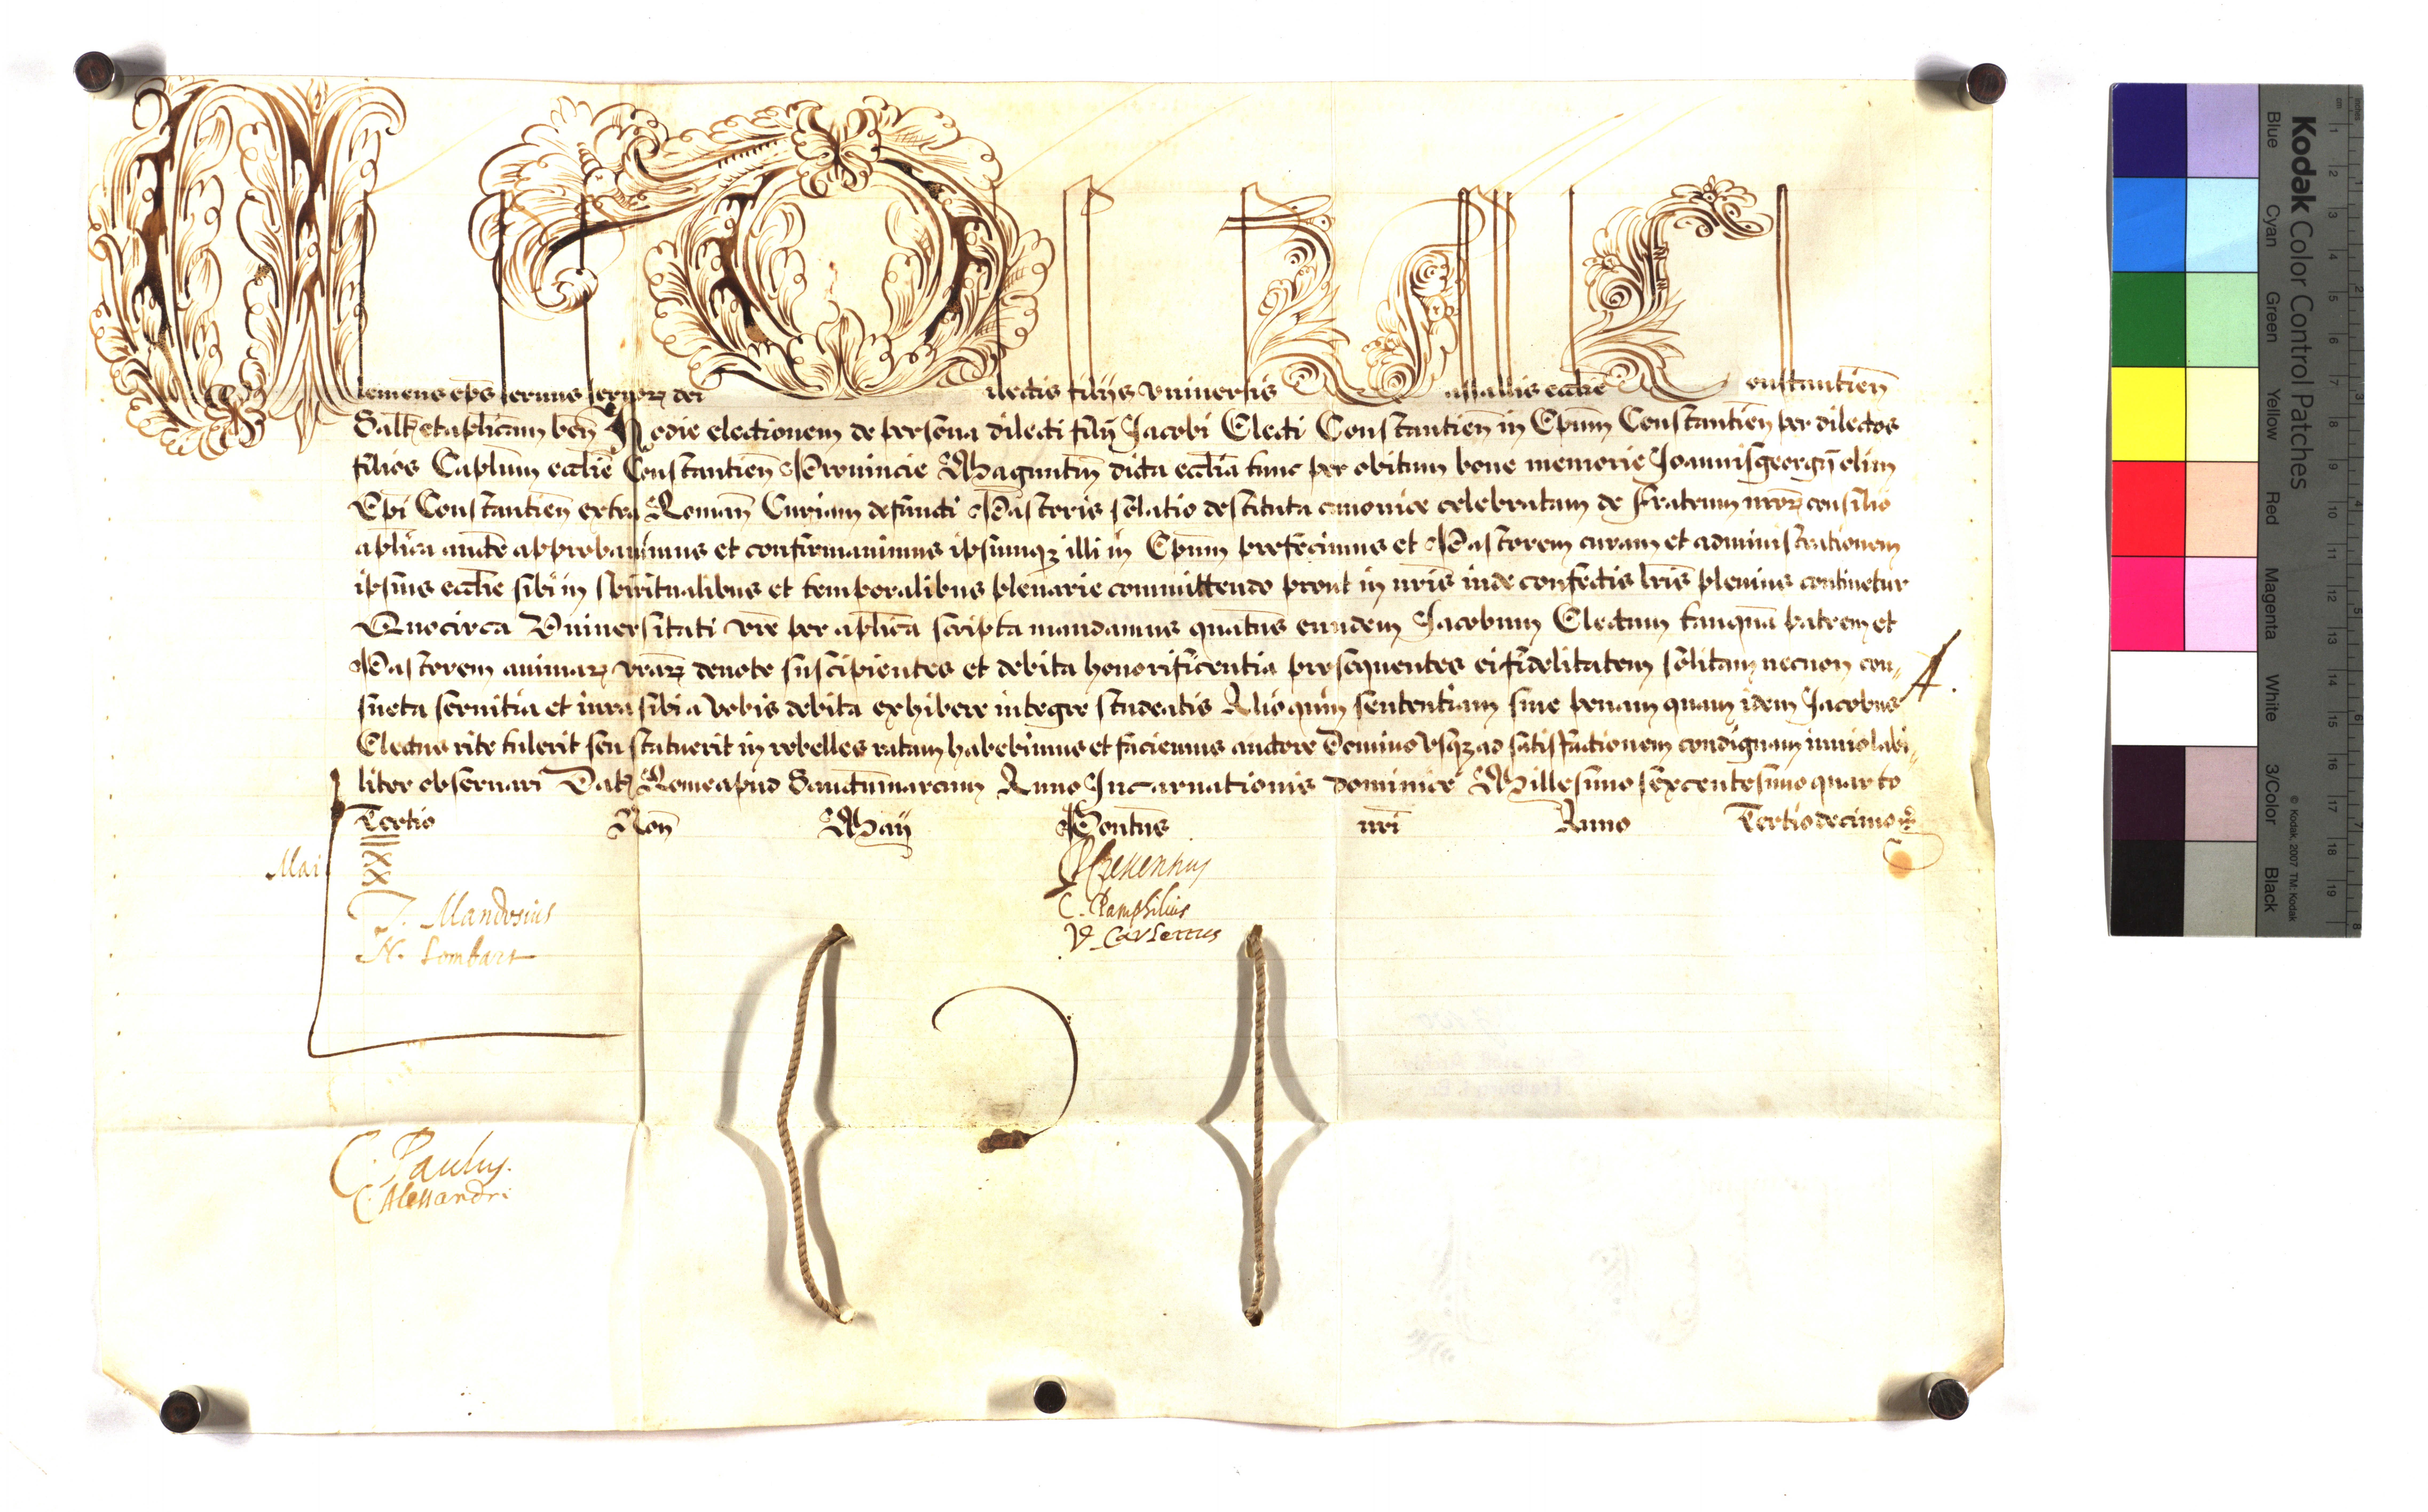 Clemens ep̄s seruus seruorꝫ dei Dilectis filijs vniuersis Vassallis eccliē Constantieñ
Saltꝫ et aplicam beñ Hodie electionem de persona dilecti filij Jacobi Electi Constantieñ in Epum̄ Constantieñ per dilectos
filios Caplum eccliē Constantieñ Prouincie Maguntiñ dicta ecclīa tunc per obitum bone memorie Joannisgeorgij olim
Epī Constantieñ extra Romañ Curiam defuncti Pastoris solatio destituta canonice celebratam de fratrum nrōrꝫ consilio
aplīca aucte approbauimus et confirmauimus ipsumqꝫ illi in Epum̄ prefecimus et Pastorem curam et administrationem
ipsius eccliē sibi in spiritualibus et temporalibus plenarie committendo prout in nrīs inde confectis lrīs plenius continetur
Quocirca Vniuersitati vrē per aplīca scripta mandamus quatnūs eundem Jacobum Electum tanquā patrem et
Pastorem animarꝫ vrārꝫ deuote suscipientes et debita honorificentia prosequentes ei fidelitatem solitam necnon con„
sueta seruitia et iura sibi a vobis debita exhibere integre studeatis Alioquin sententiam siue penam quam idem Jacobus
Electus rite tulerit seu statuerit in rebelles ratam habebimus et faciemus auctore Domino vsqꝫ ad satisfactionem condignam inuiolabi„
liter obseruari Datꝫ Rome apud Sanctummarcum Anno Incarnationis dominice Millesimo sexcentesimo quarto
Tertio Noñ Maij Pontuš nrī Anno Tertiodecimo
A.
Mai.
xx
xx
J. Mandosius
N. Lombart
C. Pamphilius
C. Paulus.
C. Alessandri
Kodak Color Control Patches
Blue Cyan Green Yellow Red Magenta White 3/Color Black
© Kodak, 2007 TM: Kodak
cm 1 2 3 4 5 6 7 8 9 10 11 12 13 14 15 16 17 18 19
inches 1 2 3 4 5 6 7 8